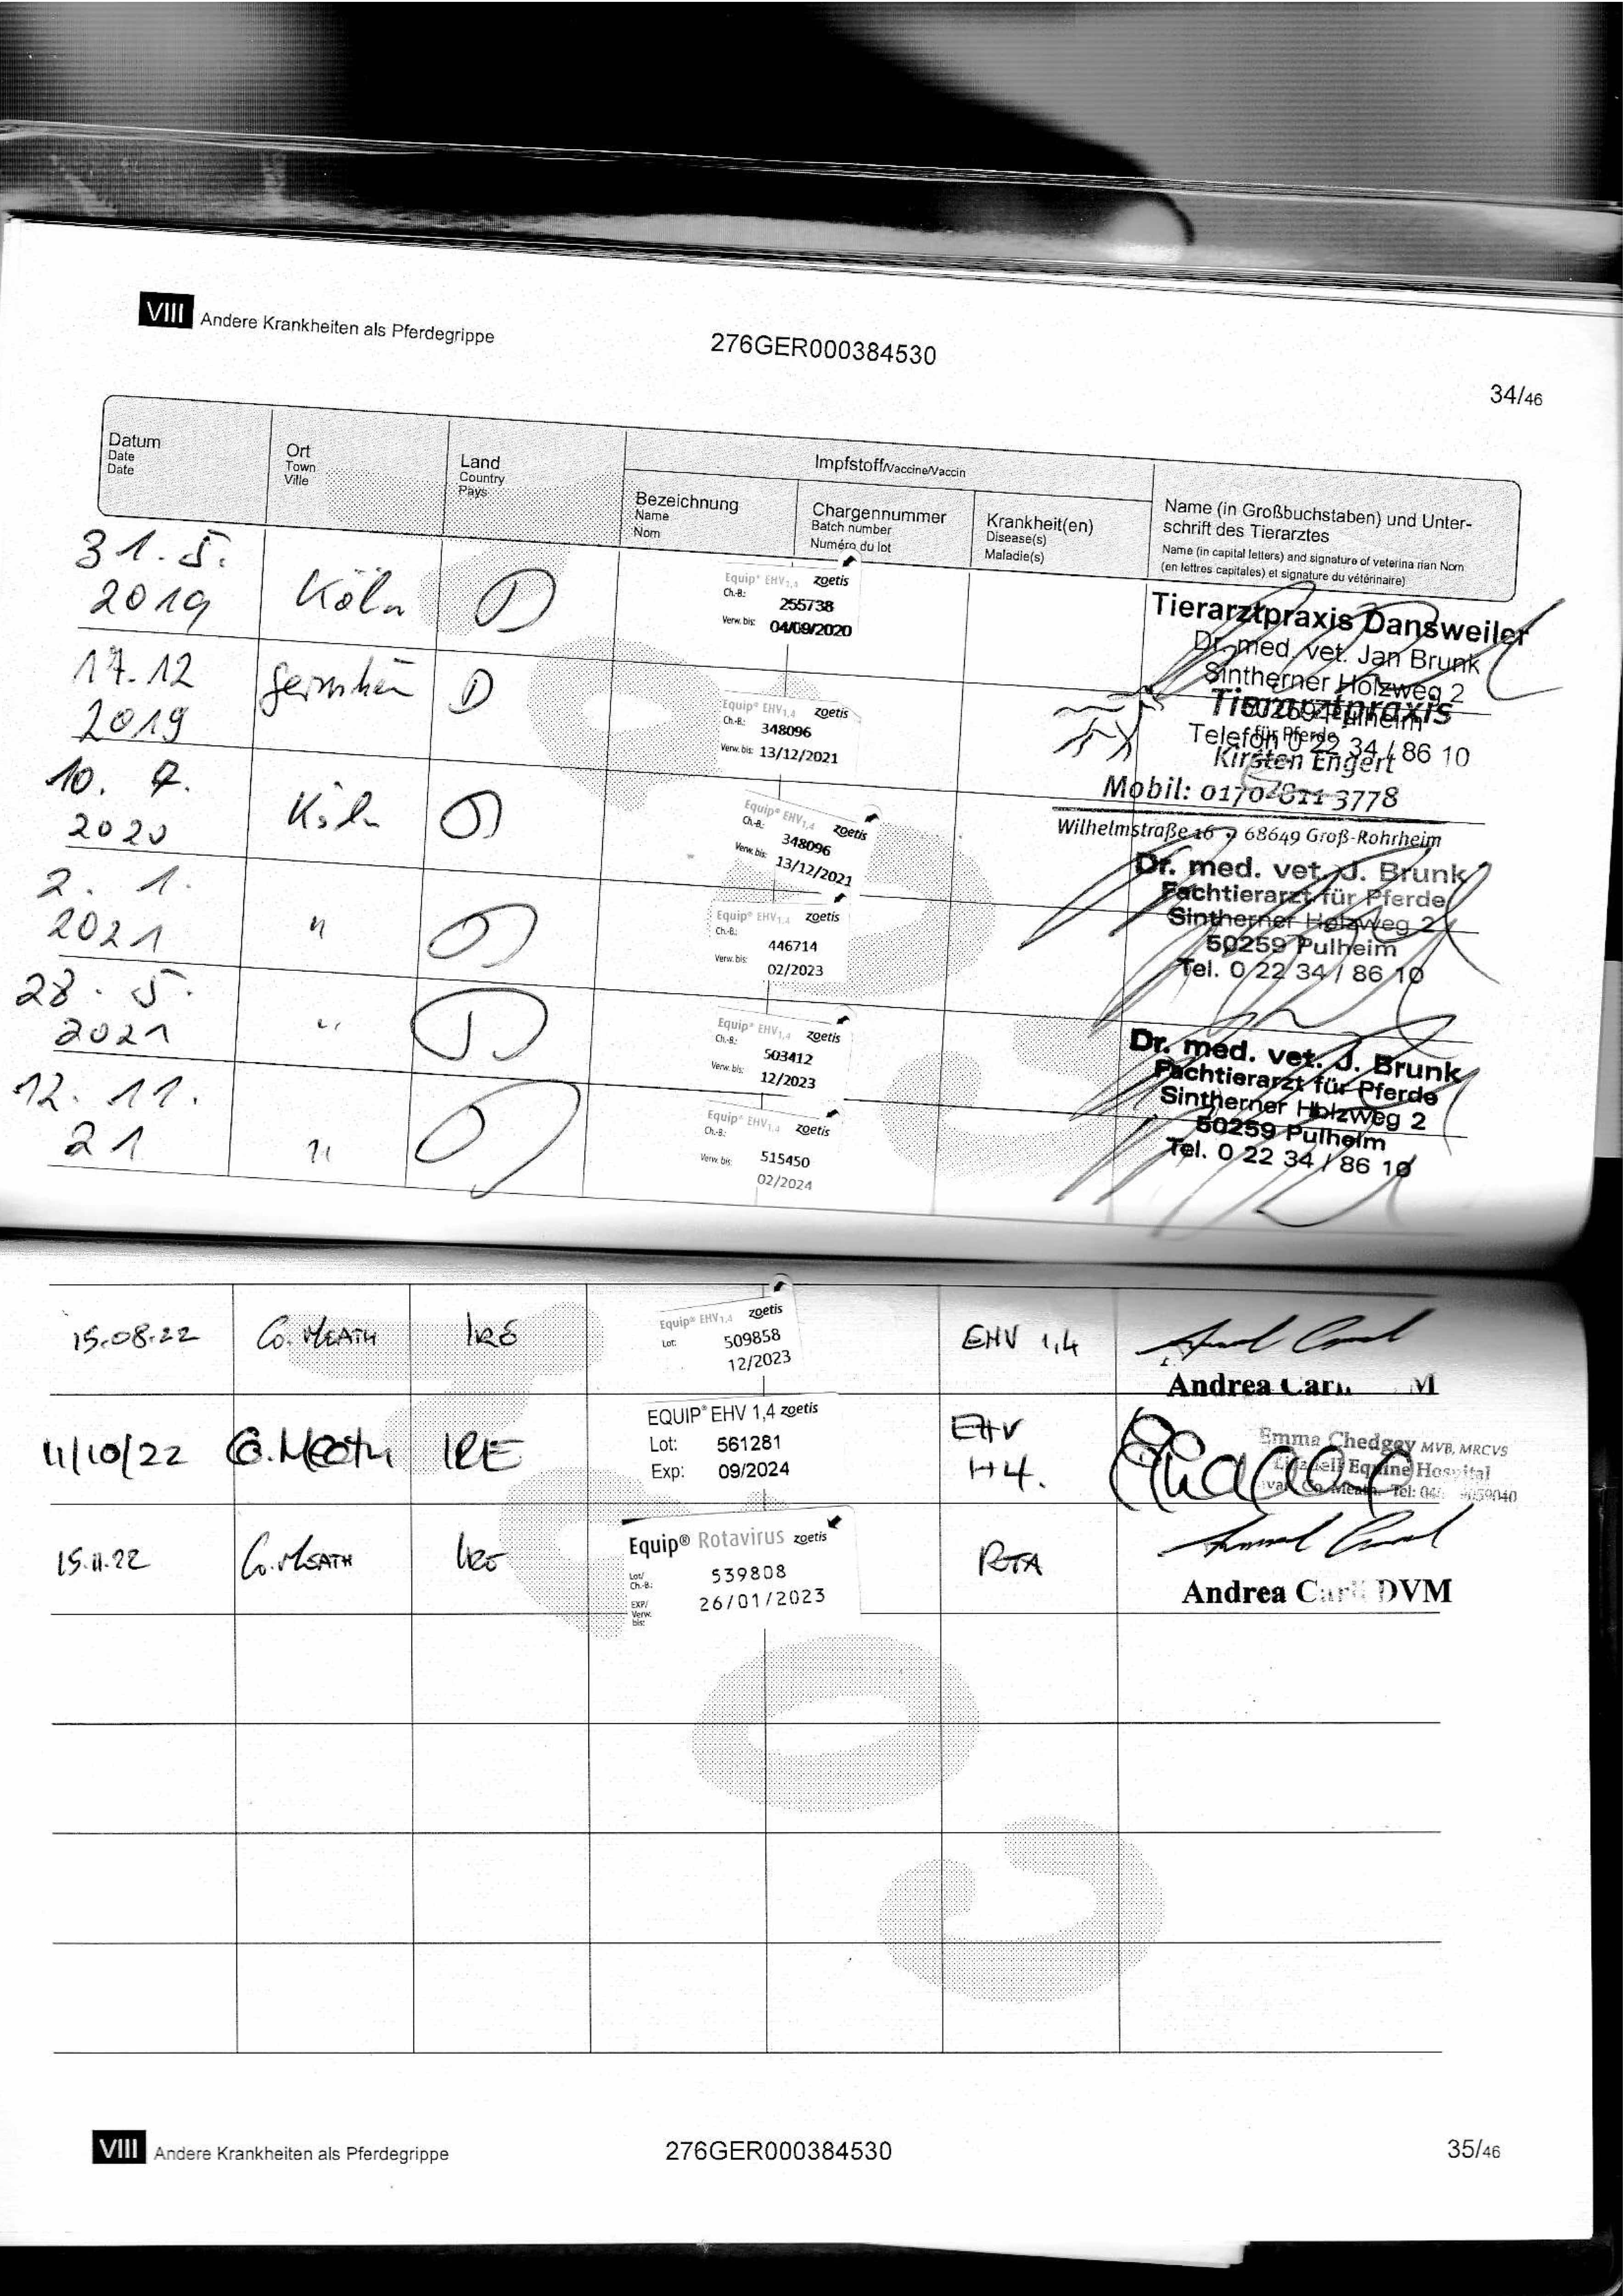 VIII Andere Krankheiten als Pferdegrippe
276GER000384530
34/46
Datum
Date
Date
Ort
Town
Ville
Land
Country
Pays
Impfstoff/Vaccine/Vaccin
Bezeichnung
Name
Nom
Chargennummer
Batch number
Numéro du lot
Krankheit(en)
Disease(s)
Maladie(s)
Name (in Großbuchstaben) und Unter-
schrift des Tierarztes
Name (in capital letters) and signature of veterina rian Nom
(en lettres capitales) et signature du vétérinaire)
31. 5.
2019
Köln
D
Equip® EHV1,4 zoetis
Ch.-B.:
255738
Verw. bis: 04/09/2020
Tierarztpraxis Dansweiler
Dr. med. vet. Jan Brunk
Sintherner Holzweg 2
50259 Pulheim
Telefon 0 22 34 / 86 10
17.12
2019
D
Equip® EHV1,4 zoetis
Ch.-B.:
348096
Verw. bis: 13/12/2021
Tierarztpraxis
für Pferde
Kirsten Engert
Mobil: 0170-2811 3778
Wilhelmstraße 16 68649 Groß-Rohrheim
10. 7.
2020
Köln
D
Equip® EHV1,4 zoetis
Ch.-B.:
348096
Verw. bis: 13/12/2021
Dr. med. vet. J. Brunk
Fachtierarzt für Pferde
Sintherner Holzweg 2
50259 Pulheim
Tel. 0 22 34 / 86 10
2. 1.
2021
"
D
Equip® EHV1,4 zoetis
Ch.-B.:
446714
Verw. bis:
02/2023
28. 5.
2021
"
D
Equip® EHV1,4 zoetis
Ch.-B.:
503412
Verw. bis:
12/2023
Dr. med. vet. J. Brunk
Fachtierarzt für Pferde
Sintherner Holzweg 2
50259 Pulheim
Tel. 0 22 34 / 86 10
12. 11.
21
"
D
Equip® EHV1,4 zoetis
Ch.-B.:
Verw. bis: 515450
02/2024
15.08.22
Co. MEATH
IRE
Equip® EHV1,4 zoetis
Lot: 509858
12/2023
EHV 1,4
Andrea Car M
11/10/22
Co. Meath
IRE
EQUIP® EHV 1,4 zoetis
Lot: 561281
Exp: 09/2024
EHV
1+4.
Emma Chedgey MVB, MRCVS
Equine Hospital
Co. Meath. Tel: 9059040
15.11.22
Co. MEATH
IRE
Equip® Rotavirus zoetis
Lot/
Ch.-B.:
539808
EXP/
Verw.
bis:
26/01/2023
ROTA
Andrea Carli DVM
VIII Andere Krankheiten als Pferdegrippe
276GER000384530
35/46